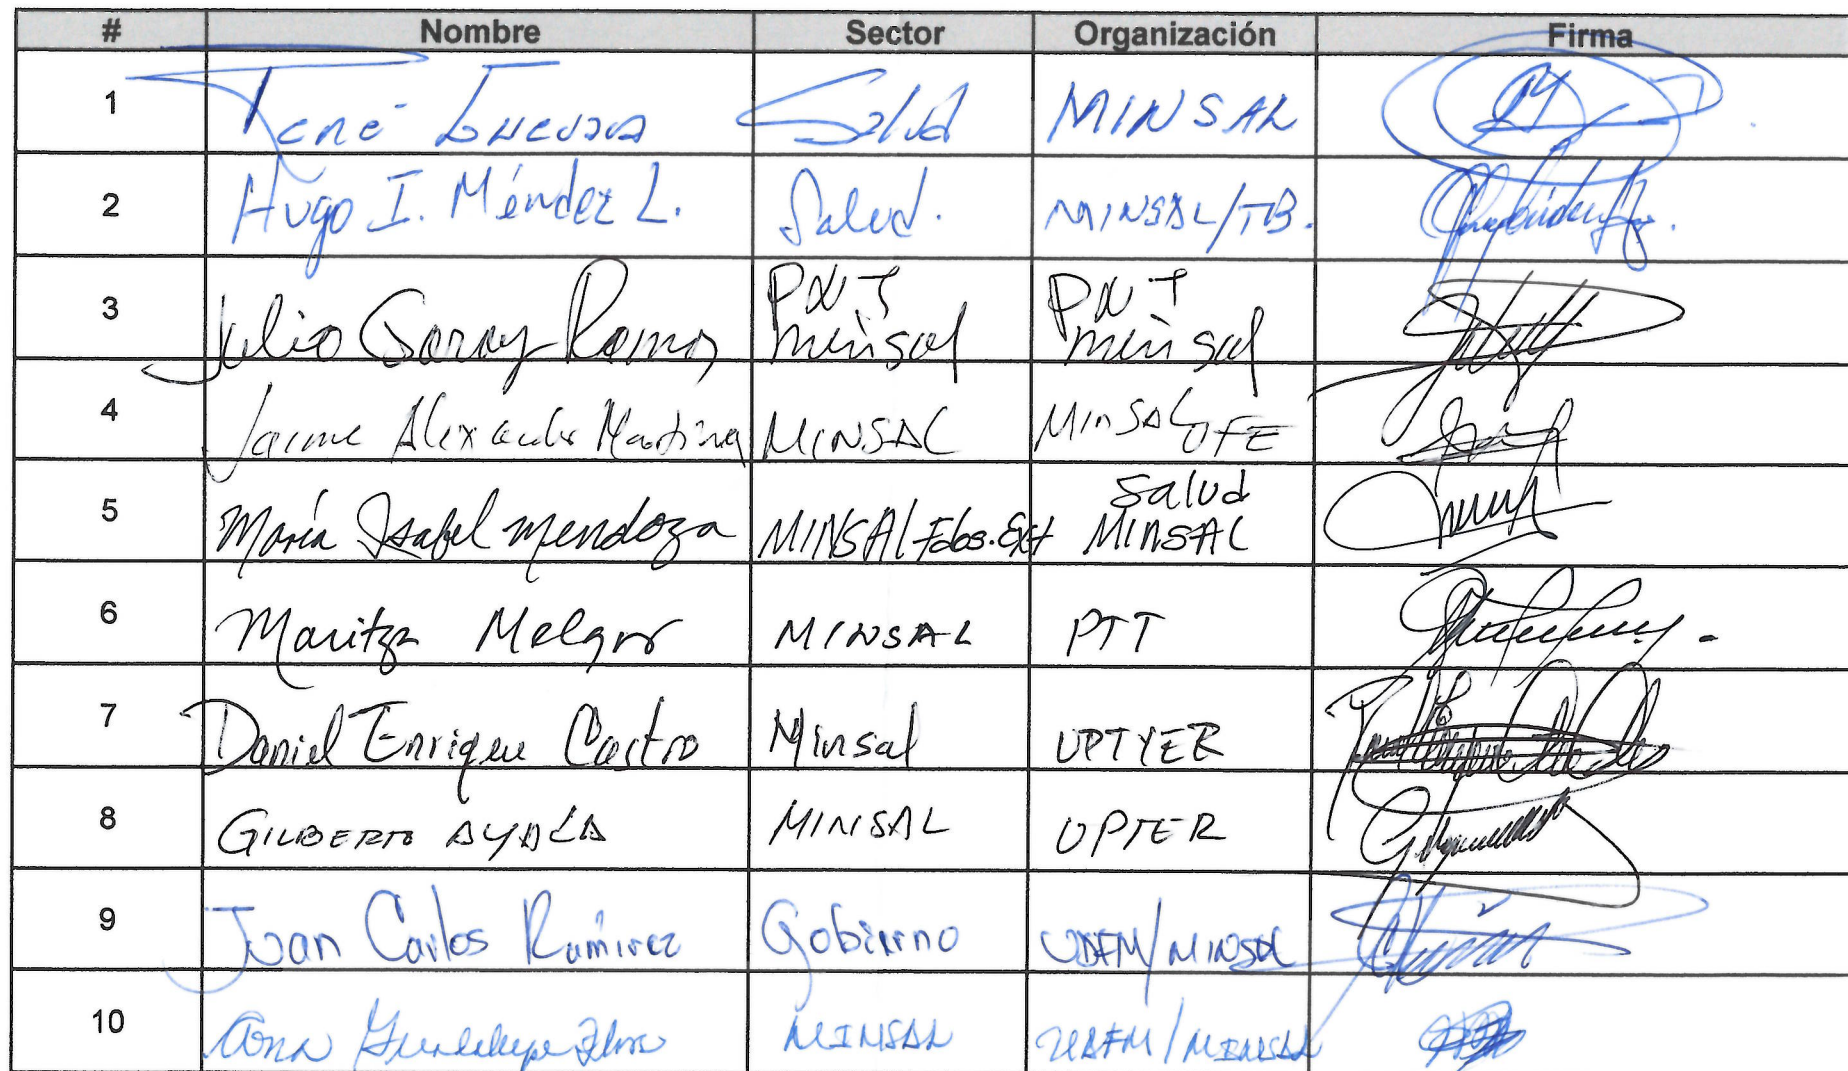 # Nombre Sector Organización Firma
1 René Guevara Salud MINSAL
2 Hugo I. Méndez L. Salud. MINSAL/TB.
3 Julio Garay Ramos PNT minsal PNT minsal
4 Jaime Alexander Martínez MINSAL MINSAL UFE
5 María Isabel Mendoza MINSAL/Fdos.Ext Salud MINSAL
6 Maritza Melgar MINSAL PTT
7 Daniel Enrique Castro Minsal UPTYER
8 GILBERTO AYALA MINSAL UPTER
9 Juan Carlos Ramírez Gobierno UAFM/MINSAL
10 Ana Guadalupe Flores MINSAL UAFM/MINSAL